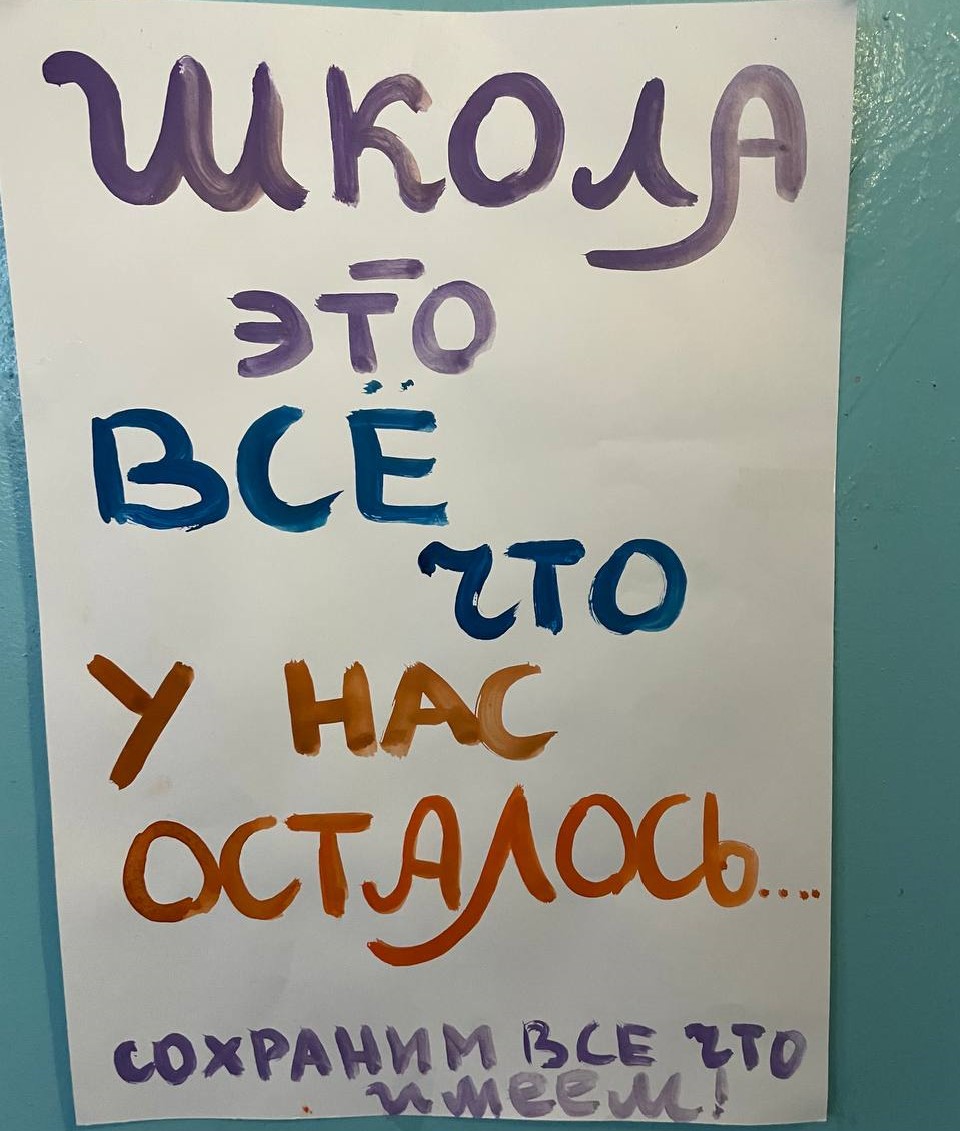 ШКОЛА
ЭТО
ВСЁ
ЧТО
У НАС
ОСТАЛОСЬ....
СОХРАНИМ ВСЕ ЧТО
имеем!